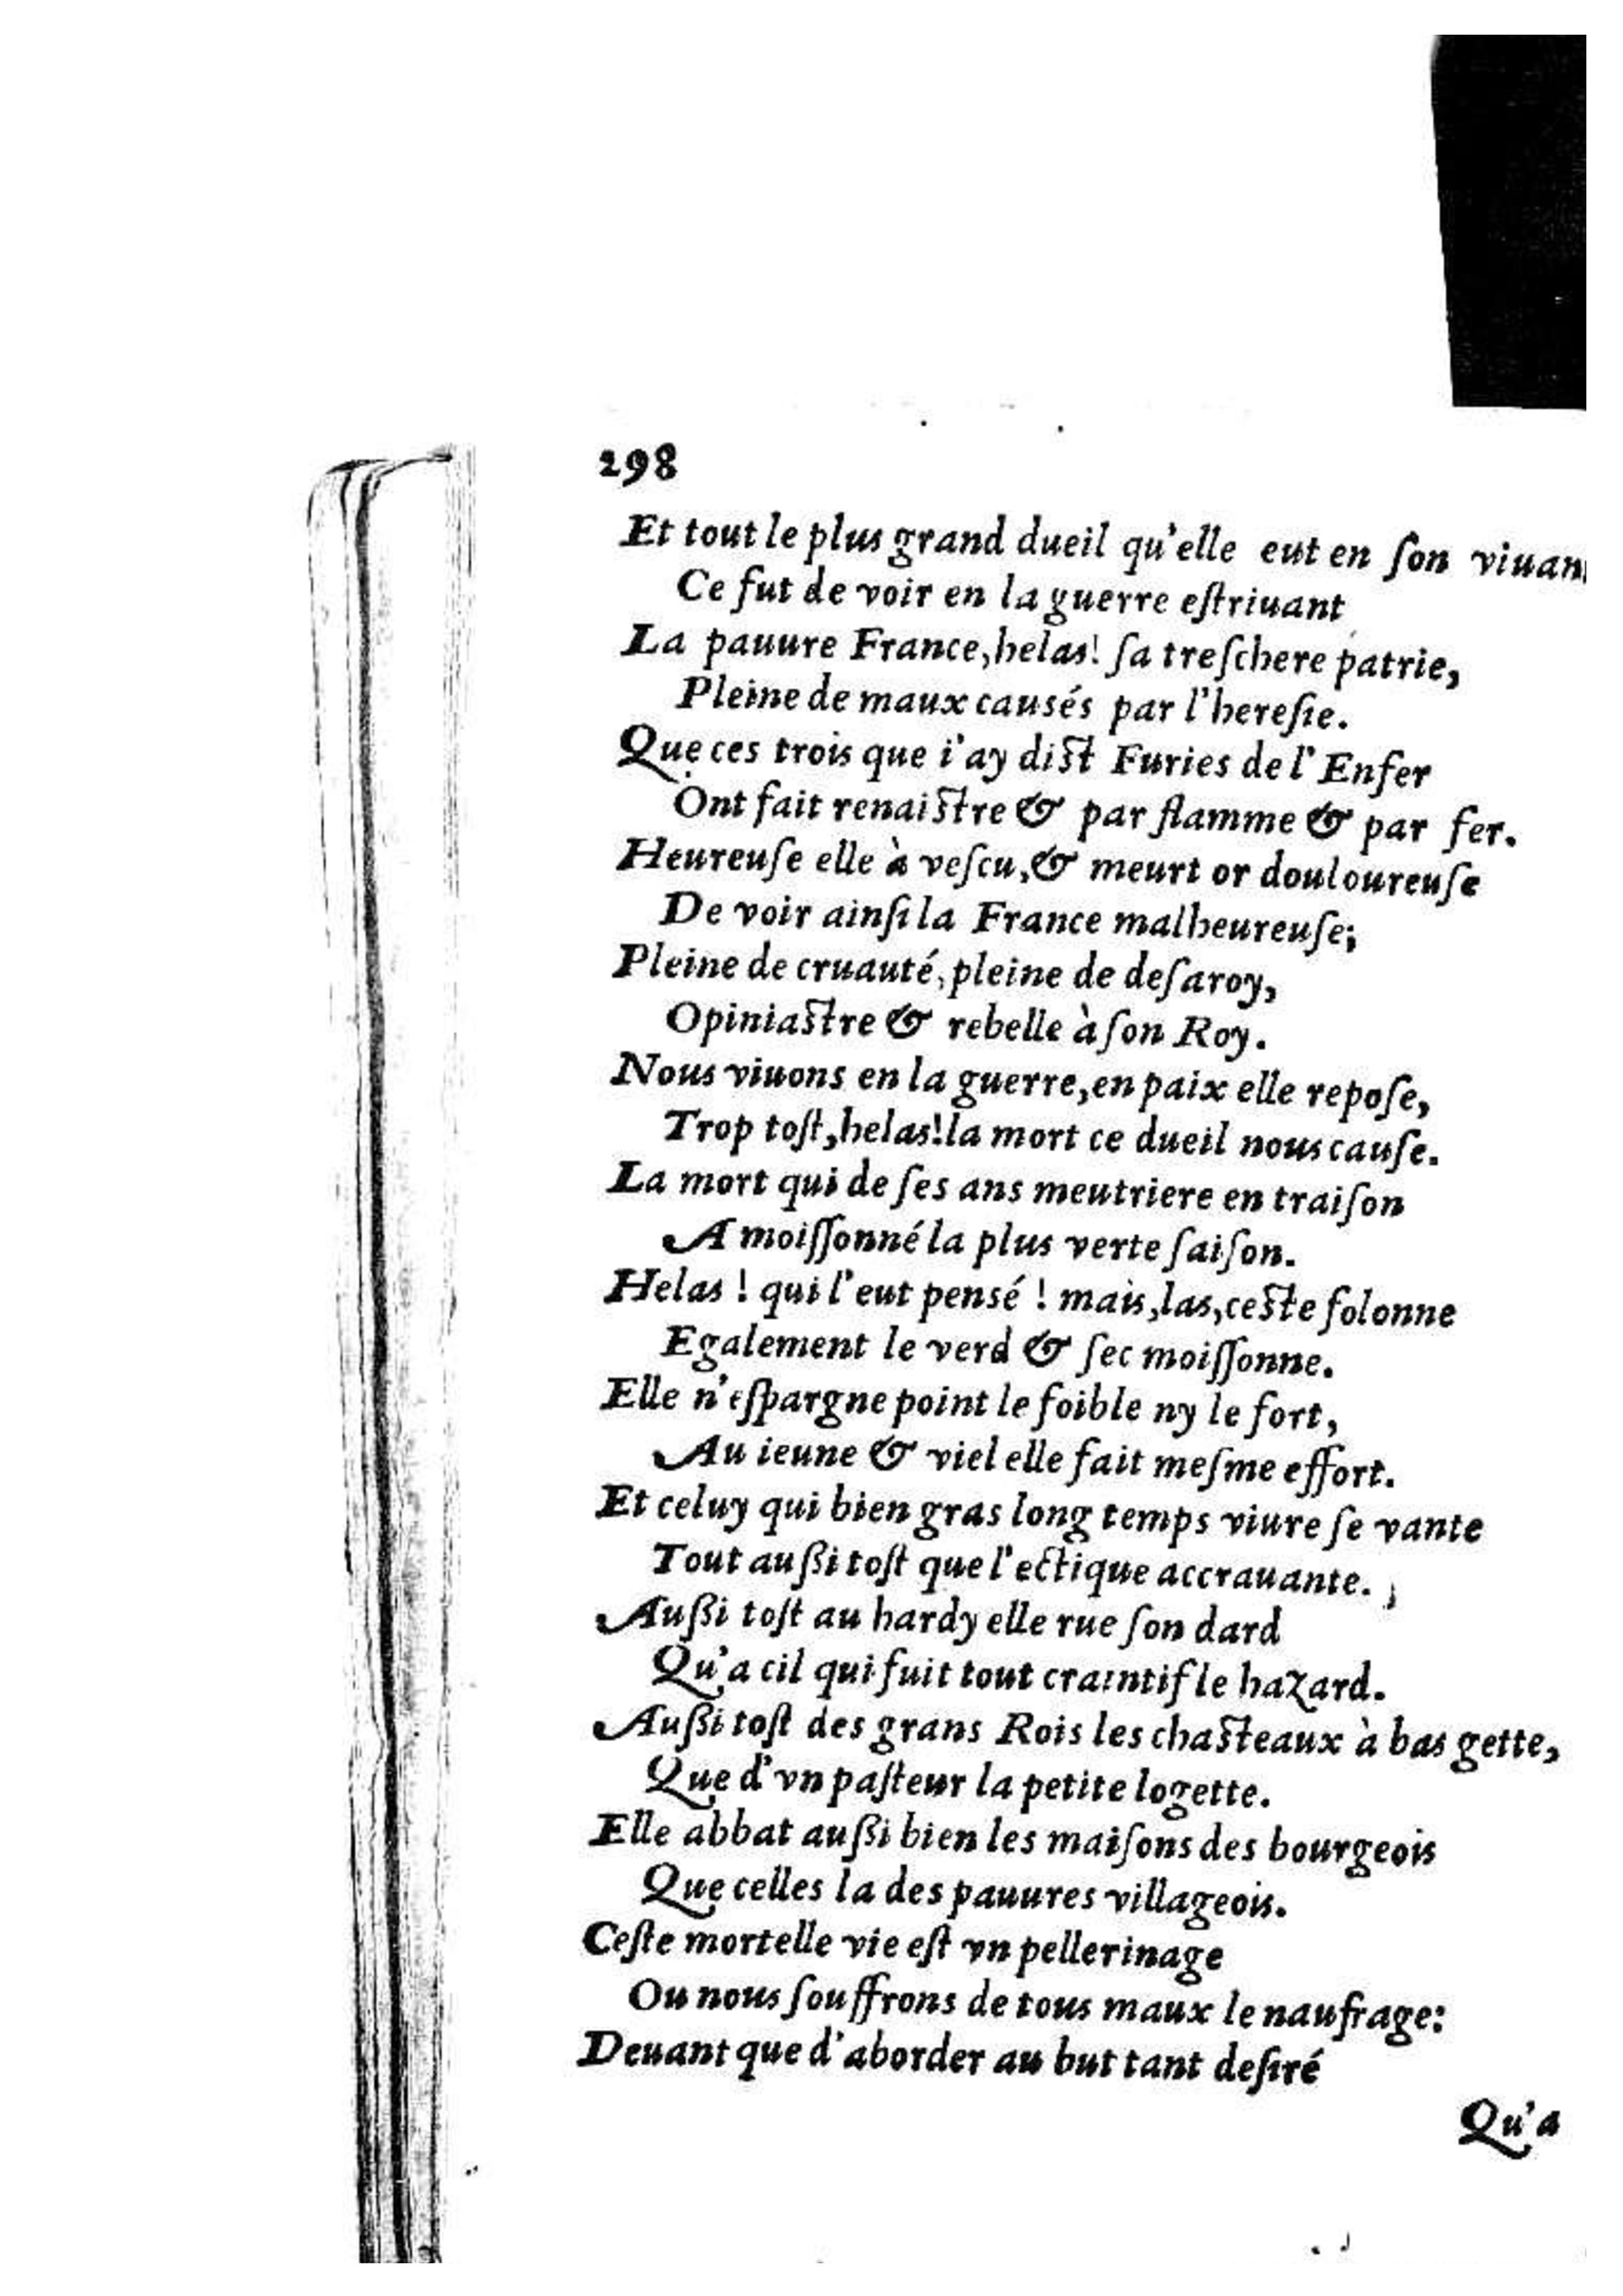 298
Et tout le plus grand dueil qu'elle eut en ſon viuan
Ce fut de voir en la guerre eſtriuant
La pauure France, helas! ſa treſchere patrie,
Pleine de maux causés par l'hereſie.
Que ces trois que i'ay diſt Furies de l'Enfer
Ont fait renaiſtre & par flamme & par fer.
Heureuſe elle à veſcu, & meurt or douloureuſe
De voir ainſi la France malheureuſe;
Pleine de cruauté, pleine de deſaroy,
Opiniaſtre & rebelle à ſon Roy.
Nous viuons en la guerre, en paix elle repoſe,
Trop toſt, helas! la mort ce dueil nous cauſe.
La mort qui de ſes ans meutriere en traiſon
A moiſſonné la plus verte ſaiſon.
Helas ! qui l'eut pensé ! mais, las, ceſte folonne
Egalement le verd & ſec moiſſonne.
Elle n'eſpargne point le foible ny le fort,
Au ieune & viel elle fait meſme effort.
Et celuy qui bien gras long temps viure ſe vante
Tout auſſi toſt que l'ectique accrauante.
Auſſi toſt au hardy elle rue ſon dard
Qu'a cil qui fuit tout craintif le hazard.
Auſſi toſt des grans Rois les chaſteaux à bas gette,
Que d'vn paſteur la petite logette.
Elle abbat auſſi bien les maiſons des bourgeois
Que celles la des pauures villageois.
Ceſte mortelle vie eſt vn pellerinage
Ou nous ſouffrons de tous maux le naufrage:
Deuant que d'aborder au but tant deſiré
Qu'a